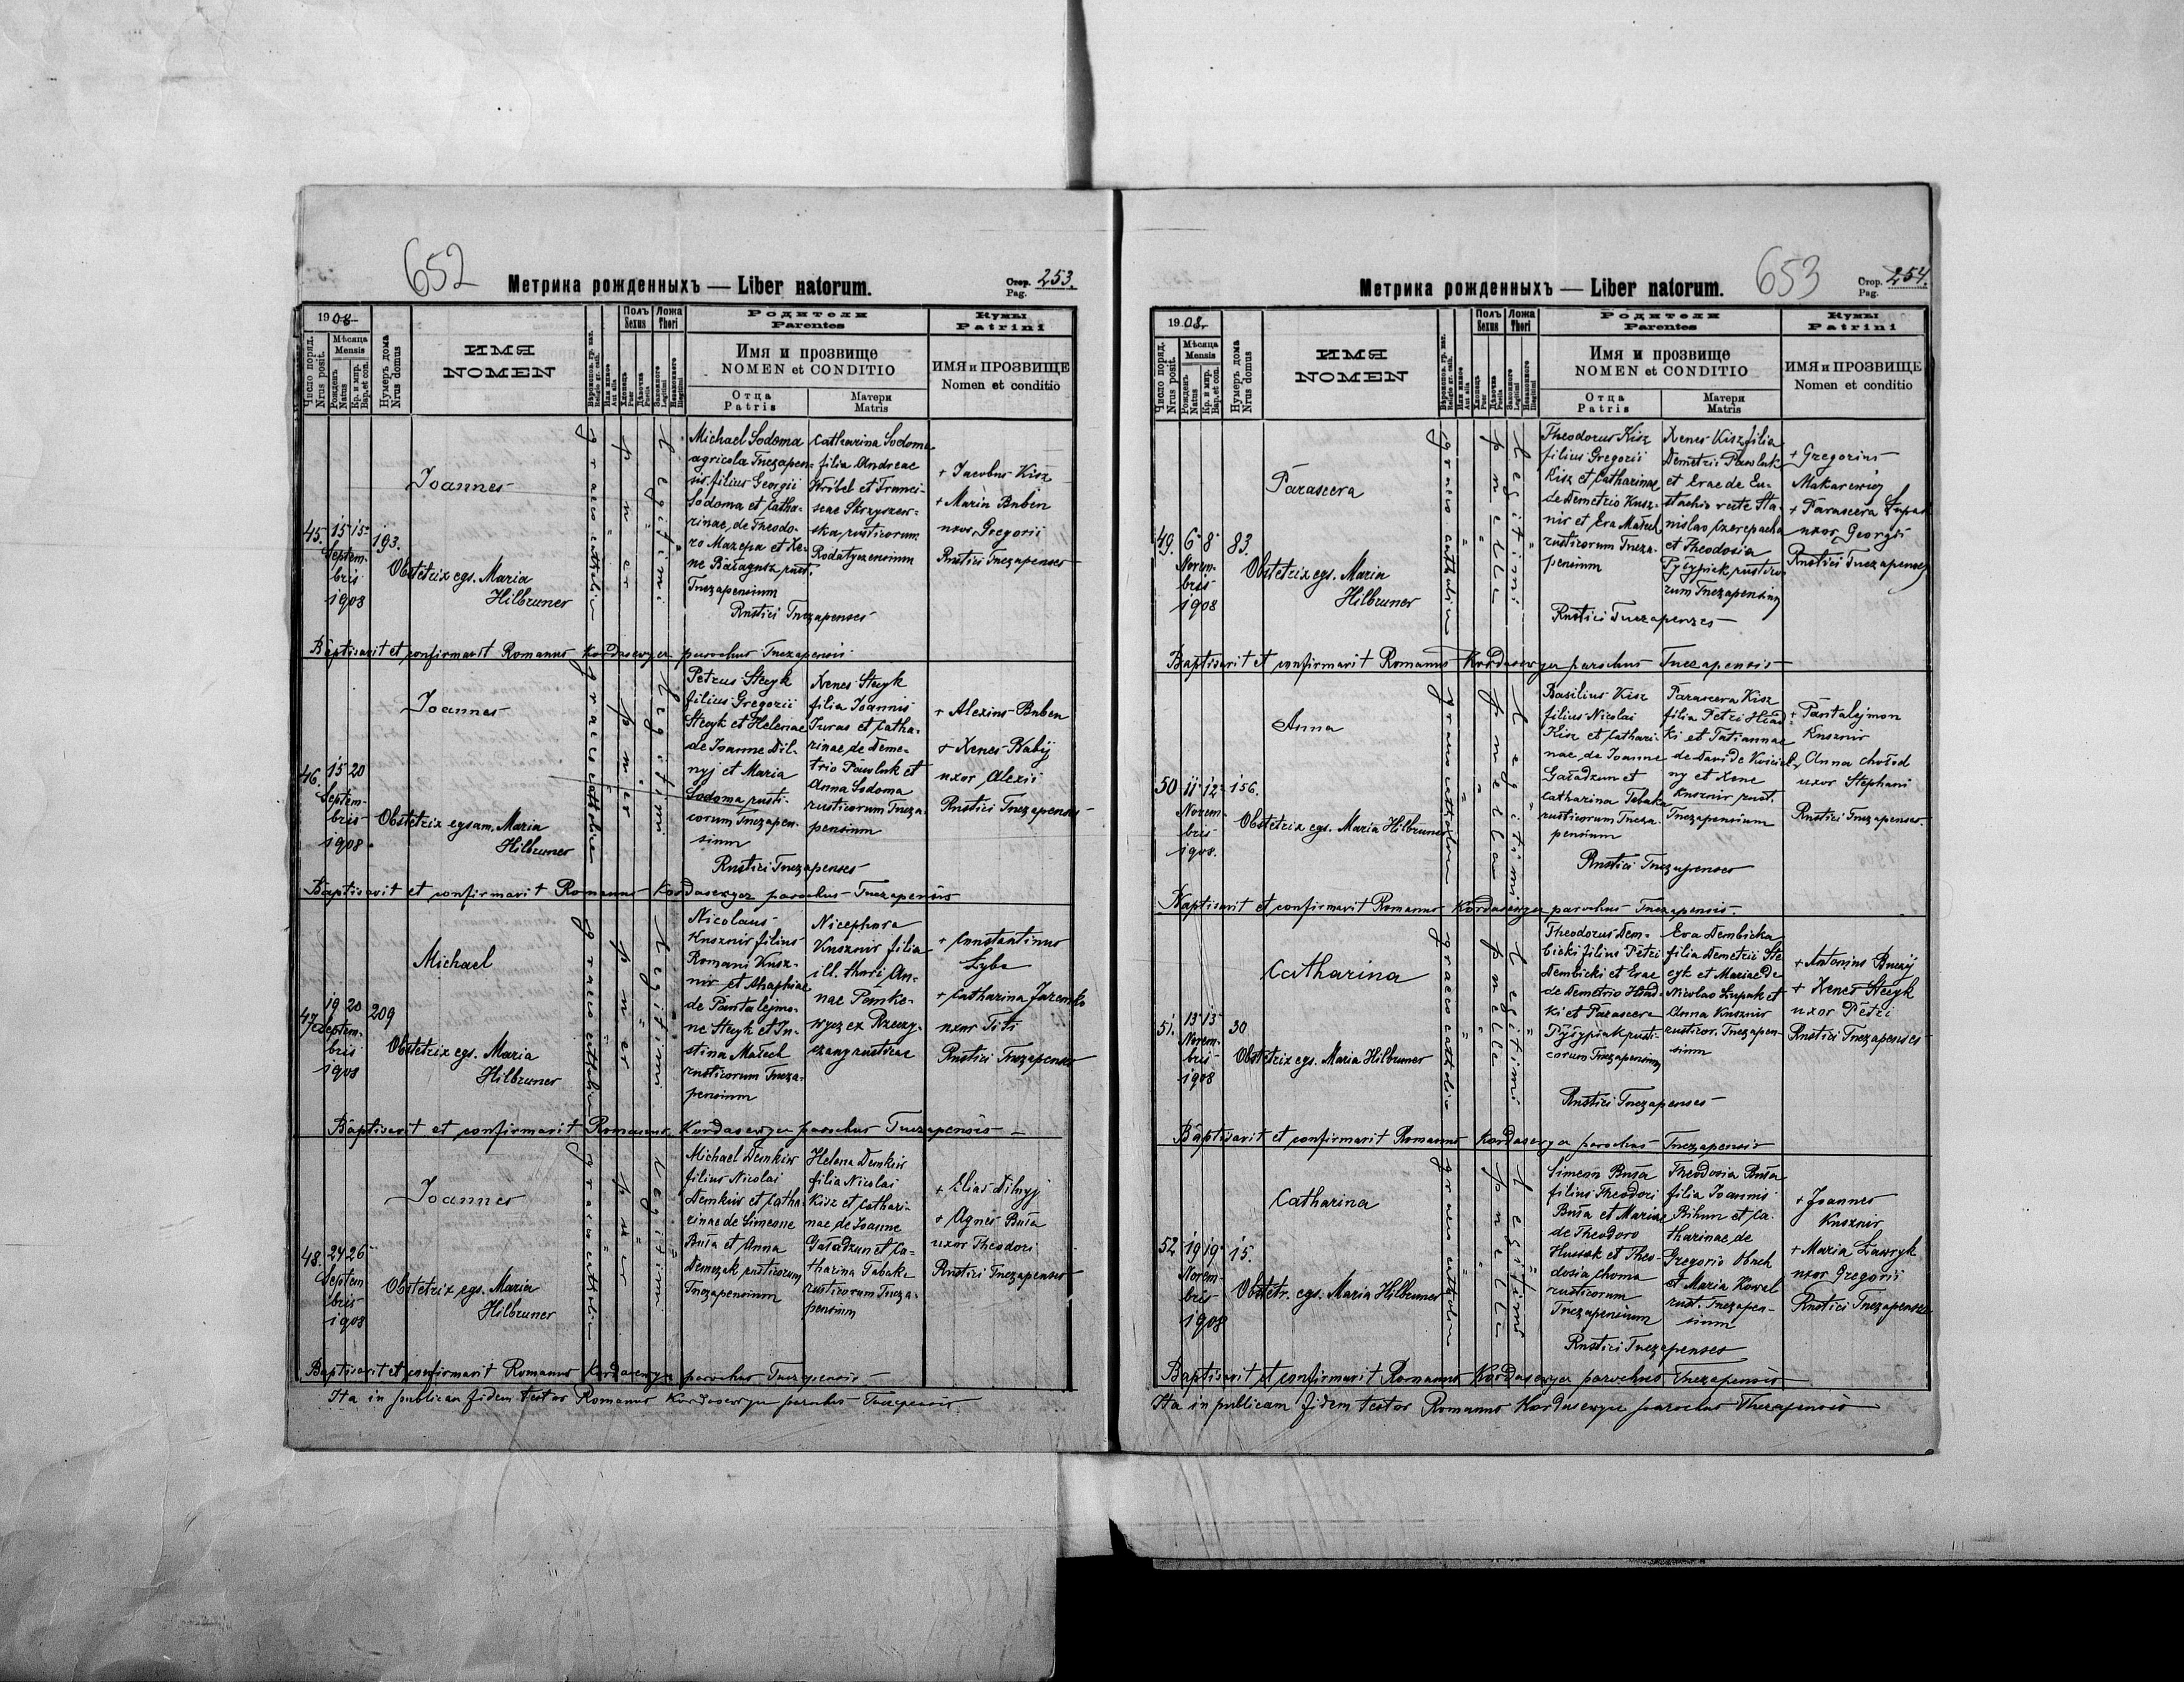 652
Метрика рожденныхъ — Liber natorum.
Стор. Pag. 253.
1908
Число поряд. Nrus posit.
Мѣсяца Mensis
Рожденъ Natus
Кр. и мир. Bap. et con.
Нумеръ дома Nrus domus
ИМЯ
NOMEN
Полъ Sexus
Ложа Thori
Родители
Parentes
Имя и прозвище
NOMEN et CONDITIO
Отца Patris
Матери Matris
Кумы
Patrini
ИМЯ и ПРОЗВИЩЕ
Nomen et conditio
45.
15 15
Septem-
bris
1908
193.
Joannes
Obstetrix egs. Maria
Hilbruner
graeco catholica
puer
Legitimi
Michael Sodoma
agricola Tnezapen-
sis filius Georgii
Sodoma et Catha-
rinae, de Theodo-
ro Mazepa et Xe-
ne Bałagusz rust.
Tnezapensium
Rustici Tnezapenses
Catharina Sodoma
filia Andreae
Wróbel et Franci-
scae Skrzyszew-
ska, rusticorum
Rodatyczensium
+ Jacobus Kisz
+ Maria Buben
uxor Gregorii
Rustici Tnezapenses
Baptisavit et confirmavit Romanus Kordasewycz parochus Tnezapensis
46.
15 20
Septem-
bris
1908
Joannes
Obstetrix egsam. Maria
Hilbruner
graeco catholica
puer
Legitimi
Petrus Stecyk
filius Gregorii
Stecyk et Helenae
de Joanne Dil-
nyj et Maria
Sodoma rusti-
corum Tnezapen-
sium
Rustici Tnezapenses
Xenes Stecyk
filia Joannis
Juras et Catha-
rinae, de Deme-
trio Pawluk et
Anna Sodoma
rusticorum Tneza-
pensium
+ Alexius Buben
+ Xenes Babij
uxor Alexii
Rustici Tnezapenses
Baptisavit et confirmavit Romanus Kordasewycz parochus Tnezapensis
47.
19 20
Septem-
bris
1908
209
Michael
Obstetrix egs. Maria
Hilbruner
graeco catholica
puer
Legitimi
Nicolaus
Kusznir filius
Romani Kusz-
nir et Ahaphiae
de Pantalejmo-
ne Stecyk et Ju-
stina Małech
rusticorum Tneza-
pensium
Nicephora
Kusznir filia
ill. thori An-
nae Pomke-
wycz ex Rzeczy-
czany rusticae
+ Constantinus
Zyba
+ Catharina Jaremko
uxor Titi
Rustici Tnezapenses
Baptisavit et confirmavit Romanus Kordasewycz parochus Tnezapensis
48.
24 26
Septem
bris
1908
Joannes
Obstetrix egs. Maria
Hilbruner
graeco catholica
puer
Legitimi
Michael Demkiw
filius Nicolai
Demkiw et Catha-
rinae de Simeone
Buła et Anna
Demczak rusticorum
Tnezapensium
Helena Demkiw
filia Nicolai
Kisz et Cathari-
nae, de Joanne
Gaładzun et Ca-
tharina Tabaka
rusticorum Tneza-
pensium
+ Elias Dilnyj
+ Agnes Buła
uxor Theodori
Rustici Tnezapenses
Baptisavit et confirmavit Romanus Kordasewycz parochus Tnezapensis
Ita in publicam fidem testor Romanus Kordasewycz parochus Tnezapensis
653
Метрика рожденныхъ — Liber natorum.
Стор. Pag. 254.
1908.
Число поряд. Nrus posit.
Мѣсяца Mensis
Рожденъ Natus
Кр. и мир. Bap. et con.
Нумеръ дома Nrus domus
ИМЯ
NOMEN
Полъ Sexus
Ложа Thori
Родители
Parentes
Имя и прозвище
NOMEN et CONDITIO
Отца Patris
Матери Matris
Кумы
Patrini
ИМЯ и ПРОЗВИЩЕ
Nomen et conditio
49.
6 8
Novem-
bris
1908
83.
Parascera
Obstetrix egs. Maria
Hilbruner
graeco catholica
puella
Legitimi
Theodorus Kisz
filius Gregorii
Kisz et Catharinae
de Demetrio Kusz-
nir et Eva Małech
rusticorum Tneza-
pensium
Rustici Tnezapenses
Xenes Kisz filia
Demetrii Pawluk
et Evae de Eu-
stachio recte Sta-
nislao Czerepacha
et Theodosia
Pyłypiak rustico
rum Tnezapensium
+ Gregorius
Makarewicz
+ Parascera Łupak
uxor Georgii
Rustici Tnezapenses
Baptisavit et confirmavit Romanus Kordasewycz parochus Tnezapensis
50
11 12
Novem-
bris
1908.
156.
Anna
Obstetrix egs. Maria Hilbruner
graeco catholica
puella
Legitimi
Basilius Kisz
filius Nicolai
Kisz et Cathari-
nae, de Joanne
Gaładzun et
Catharina Tabaka
rusticorum Tneza-
pensium
Rustici Tnezapenses
Parascera Kisz
filia Petri Hład-
ki et Tatiannae
de Davide Kościel-
ny et Xene
Kusznir rust.
Tnezapensium
+ Pantalejmon
Kusznir
Anna Chołod
uxor Stephani
Rustici Tnezapenses.
Baptisavit et confirmavit Romanus Kordasewycz parochus Tnezapensis.
51.
13 13
Novem-
bris
1908
30
Catharina
Obstetrix egs. Maria Hilbruner
graeco catholica
puella
Legitimi
Theodorus Dem-
bicki filius Petri
Dembicki et Evae
de Demetrio Hład-
ki et Parascera
Pyłypiak rusti-
corum Tnezapensium
Rustici Tnezapenses
Eva Dembicka
filia Demetrii Ste
cyk et Mariae de
Nicolao Łupak et
Anna Kusznir
rusticor. Tnezapen-
sium
+ Antonius Buczij
+ Xenes Stecyk
uxor Petri
Rustici Tnezapenses
Baptisavit et confirmavit Romanus Kordasewycz parochus Tnezapensis
52
19 19
Novem-
bris
1908
15.
Catharina
Obstetr. egs. Maria Hilbruner
graeco catholica
puella
Legitimi
Simeon Buła
filius Theodori
Buła et Mariae
de Theodoro
Hussak et Theo-
dosia Choma
rusticorum
Tnezapensium
Rustici Tnezapenses
Theodosia Buła
filia Joannis
Bihun et Ca-
tharinae de
Gregorio Obuch
et Maria Kowal
rust. Tnezapen-
sium
+ Joannes
Kusznir
+ Maria Ławryk
uxor Gregorii
Rustici Tnezapenses
Baptisavit et confirmavit Romanus Kordasewycz parochus Tnezapensis
Ita in publicam fidem testor Romanus Kordasewycz parochus Tnezapensis